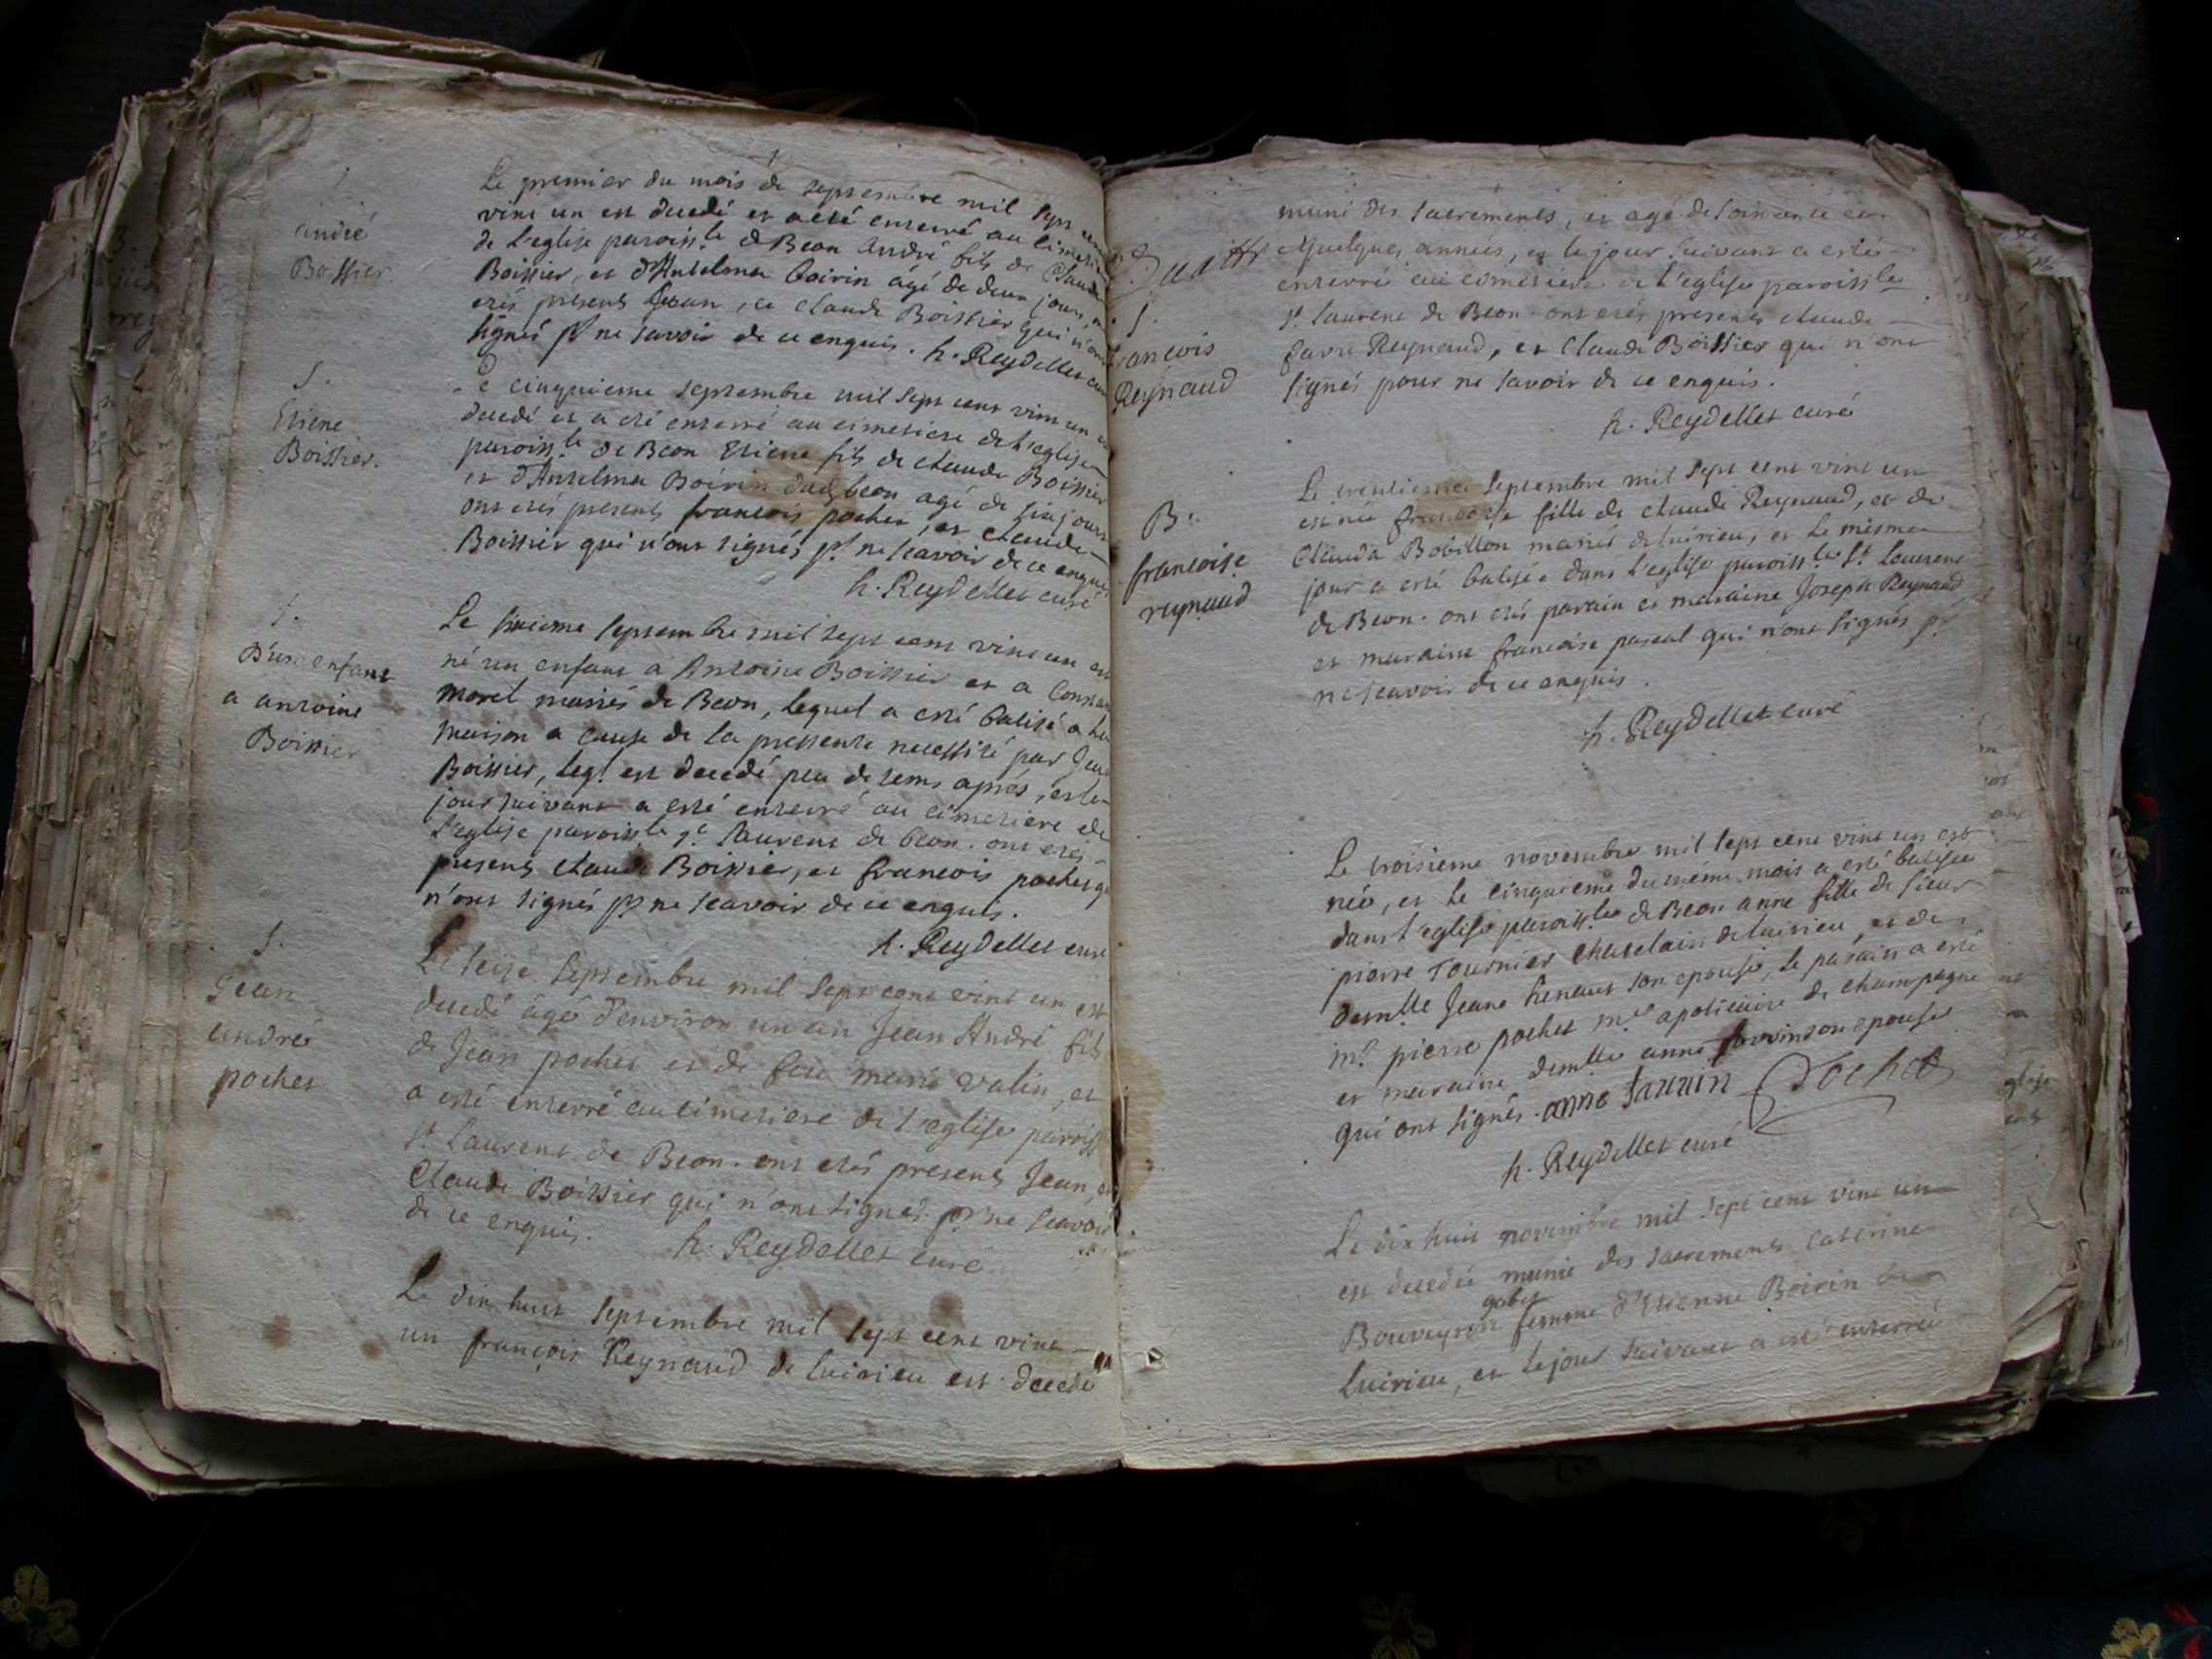 S.
andré
Bossier
Le premier du mois de septembre mil sept cent
vint un est decedé et a esté enterré au cimetiere
de l'eglise paroiss.le de Beon André fils de Claude
Boissier, et d'Antelma boirin âgé de deux jours,
etés presents Jean, et Claude Boissier qui n'ont
signés pr ne savoir de ce enquis. h. Reydellet curé
S.
Etiene
Boissier.
Le cinquieme septembre mil sept cent vint un est
decedé et a eté enterré au cimetiere de l'eglise
paroiss.le de Beon Etiene fils de claude Boissier
et d'Antelma Boirin dud beon agé de six jours
ont etés presents francois pochet, et claude
Boissier qui n'ont signés pr ne scavoir de ce enquis
h. Reydellet curé
S.
D'un enfant
a antoine
Boissier
Le sixieme septembre mil sept cent vint un est
né un enfant a Antoine Boissier et a
morel mariés de Beon, lequel a esté batisé a la
maison a cause de la pressente necessité par Jean
Boissier, leql. est decedé peu de tems aprés, et le
jour suivant a esté enterré au cimetiere de
l'eglise paroiss.le st. laurent de beon. ont etés
presents claude Boissier, et francois pochet
n'ont signés pr ne scavoir de ce enquis.
h. Reydellet curé
S.
Jean
andré
pochet
Le seize septembre mil sept cent vint un est
decedé âgé d'environ un an Jean André fils
de Jean pochet et de feüe marie valin, et
a esté enterré au cimetiere de l'eglise paroiss
st laurent de Beon. ont etés presents Jean, et
Claude Boissier qui n'ont signés pr ne scavoir
de ce enquis. h. Reydellet curé
Le dix huit septembre mil sept cent vint
un françois Reynaud de luirieu est decedé
muni des sacrements, et agé de soixante et
quelques années, et le jour suivant a estés
enterré au cimetiere de l'eglise paroiss.le
st. laurent de Beon. ont etés presents claude
favre Reynaud, et Claude Boissier qui n'ont
signés pour ne savoir de ce enquis.
h. Reydellet curé
S.
francois
Reynaud
B.
francoise
reynaud
Le trentieme septembre mil sept cent vint un
est née francoise fille de claude Reynaud, et de
Clauda Bobillon mariés de luirieu, et le mesme
jour a esté batisée dans l'eglise paroiss.le St. laurent
de Beon. ont etés parain et maraine Joseph Reynaud
et maraine francoise pascal qui n'ont signés pr
ne scavoir de ce enquis.
h. Reydellet curé
Le troisieme novembre mil sept cent vint un est
née, et le cinquieme du méme mois a esté batisée
dans l'eglise paroiss.le de Beon anne fille de sieur
pierre Tournier chatelain de luirieu, et de
demlle Jeane henaut son epouse, le parain a esté
mr. pierre pochet me apoticaire de champagne
et maraine demlle anne son epouse
qui ont signés. anne Pochet
h. Reydellet curé
Le dix huit novembre mil sept cent vint un
est decedée munie des sacrements caterine
gabet
Bouveyron femme d'Etienne Boirin de
luirieu, et le jour suivant a esté enterrée